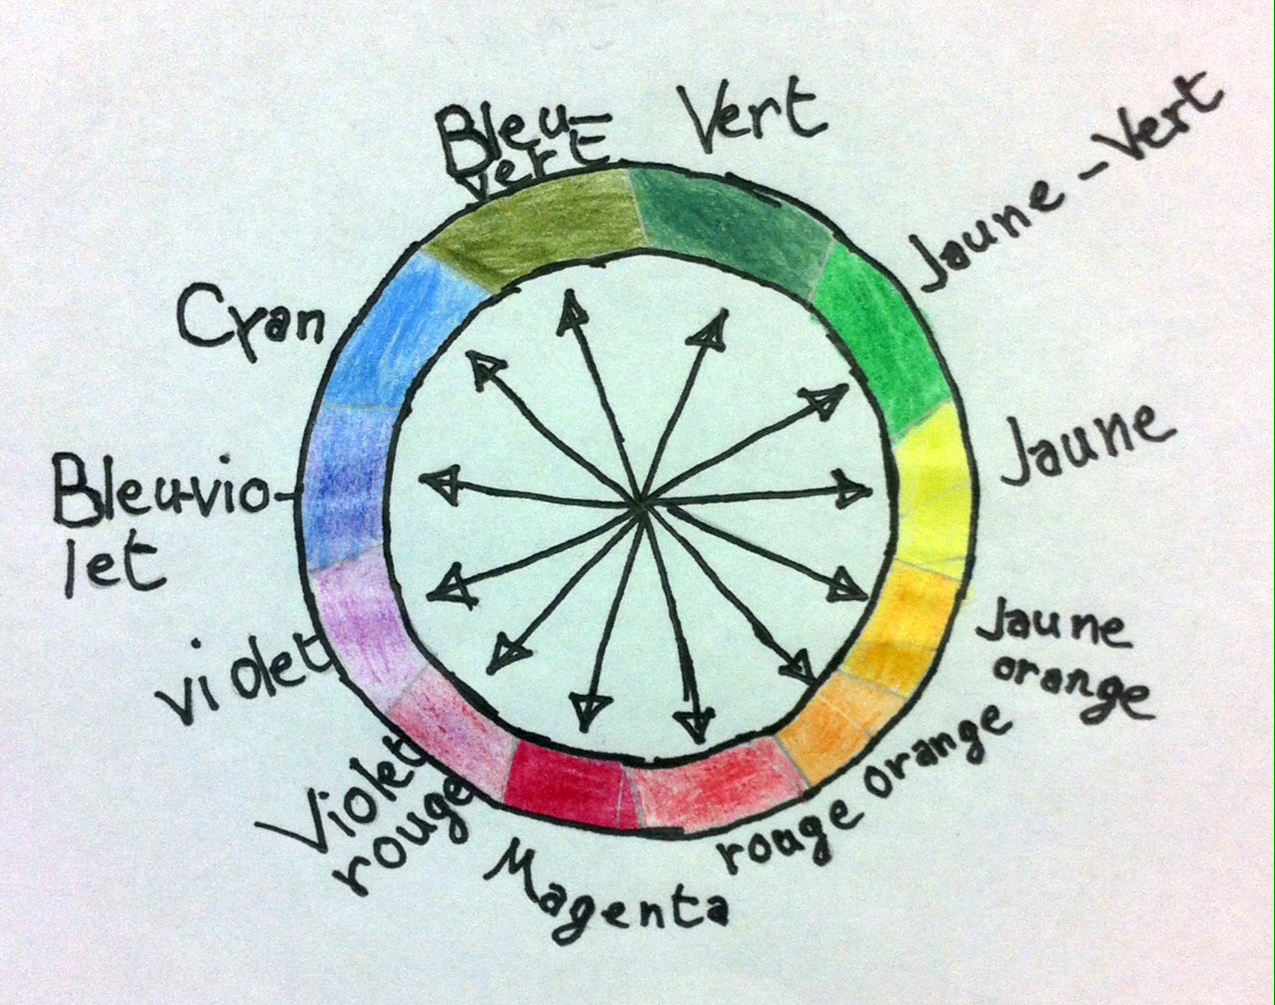 Bleu-
vert
Vert
Jaune-Vert
Cyan
Jaune
Bleu-vio-
let
Jaune
orange
violet
rouge orange
Violet
rouge
Magenta